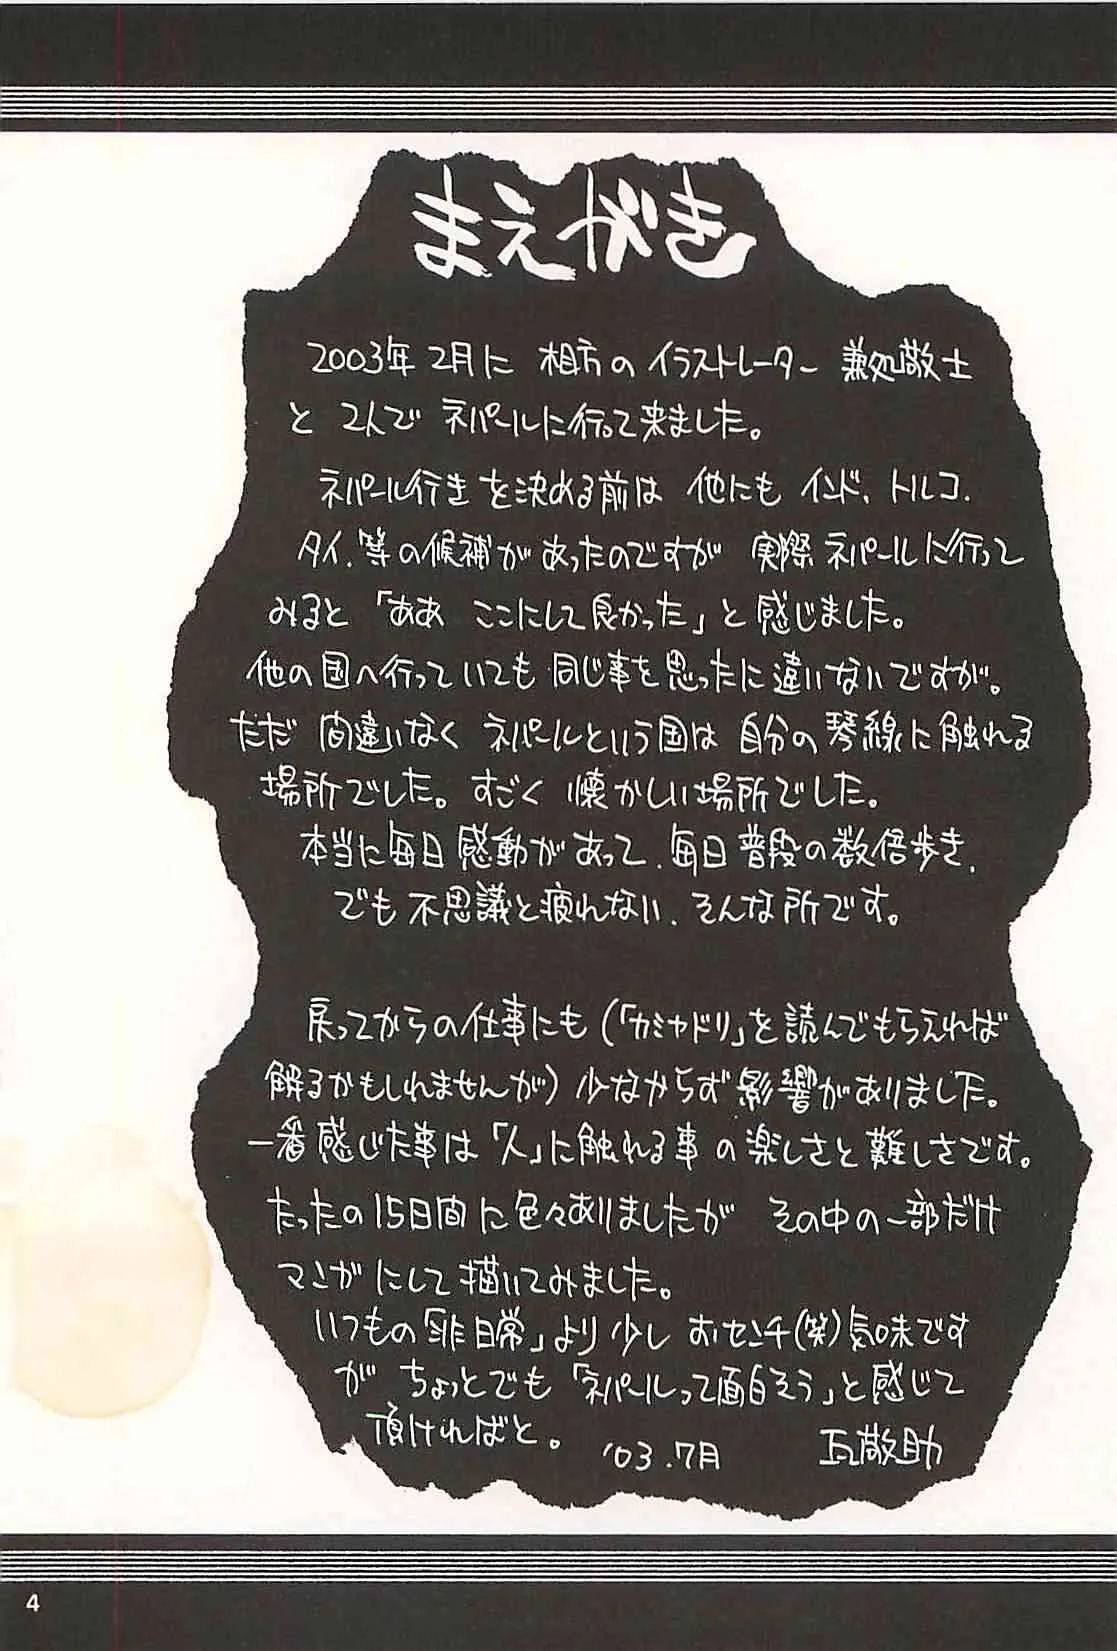 まえがき
2003年2月に 相方のイラストレーター 兼処敬士
と 2人で ネパールに行って来ました。
ネパール行きを決める前は 他にも インド、トルコ、
タイ、等の候補があったのですが 実際ネパールに行って
みると「ああ ここにして良かった」と感じました。
他の国へ行っていても 同じ事を思ったに違いないですが。
ただ 間違いなく ネパールという国は 自分の琴線に触れる
場所でした。すごく 懐かしい場所でした。
本当に毎日感動があって、毎日普段の数倍歩き、
でも不思議と疲れない、そんな所です。
戻ってからの仕事にも(「カミヤドリ」を読んでもらえれば
解るかもしれませんが)少なからず影響がありました。
一番感じた事は「人」に触れる事の楽しさと難しさです。
たったの15日間に色々ありましたが その中の一部だけ
マンガにして描いてみました。
いつもの「非日常」より少し おセンチ(笑)気味です
が ちょっとでも「ネパールって面白そう」と感じて
頂ければと。 '03.7月 瓦敬助
4